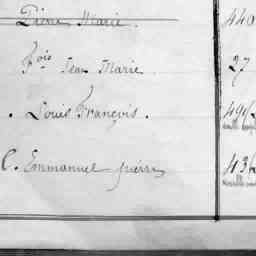 Pierre Marie. 440
Fois Jean Marie. 27
. Louis François. 496
C. Emmanuel pierre 436